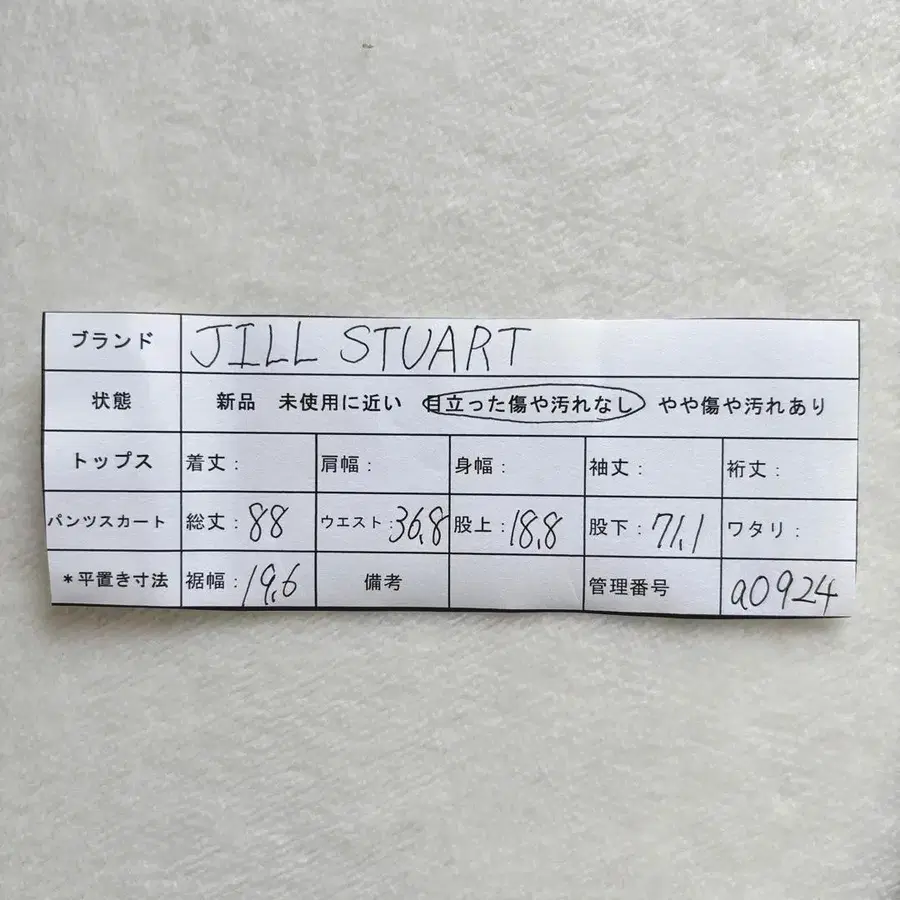 ブランド JILL STUART
状態 新品 未使用に近い 目立った傷や汚れなし やや傷や汚れあり
トップス 着丈: 肩幅: 身幅: 袖丈: 裄丈:
パンツスカート 総丈:88 ウエスト:36,8 股上:18,8 股下:71,1 ワタリ:
*平置き寸法 裾幅:19,6 備考 管理番号 a0924